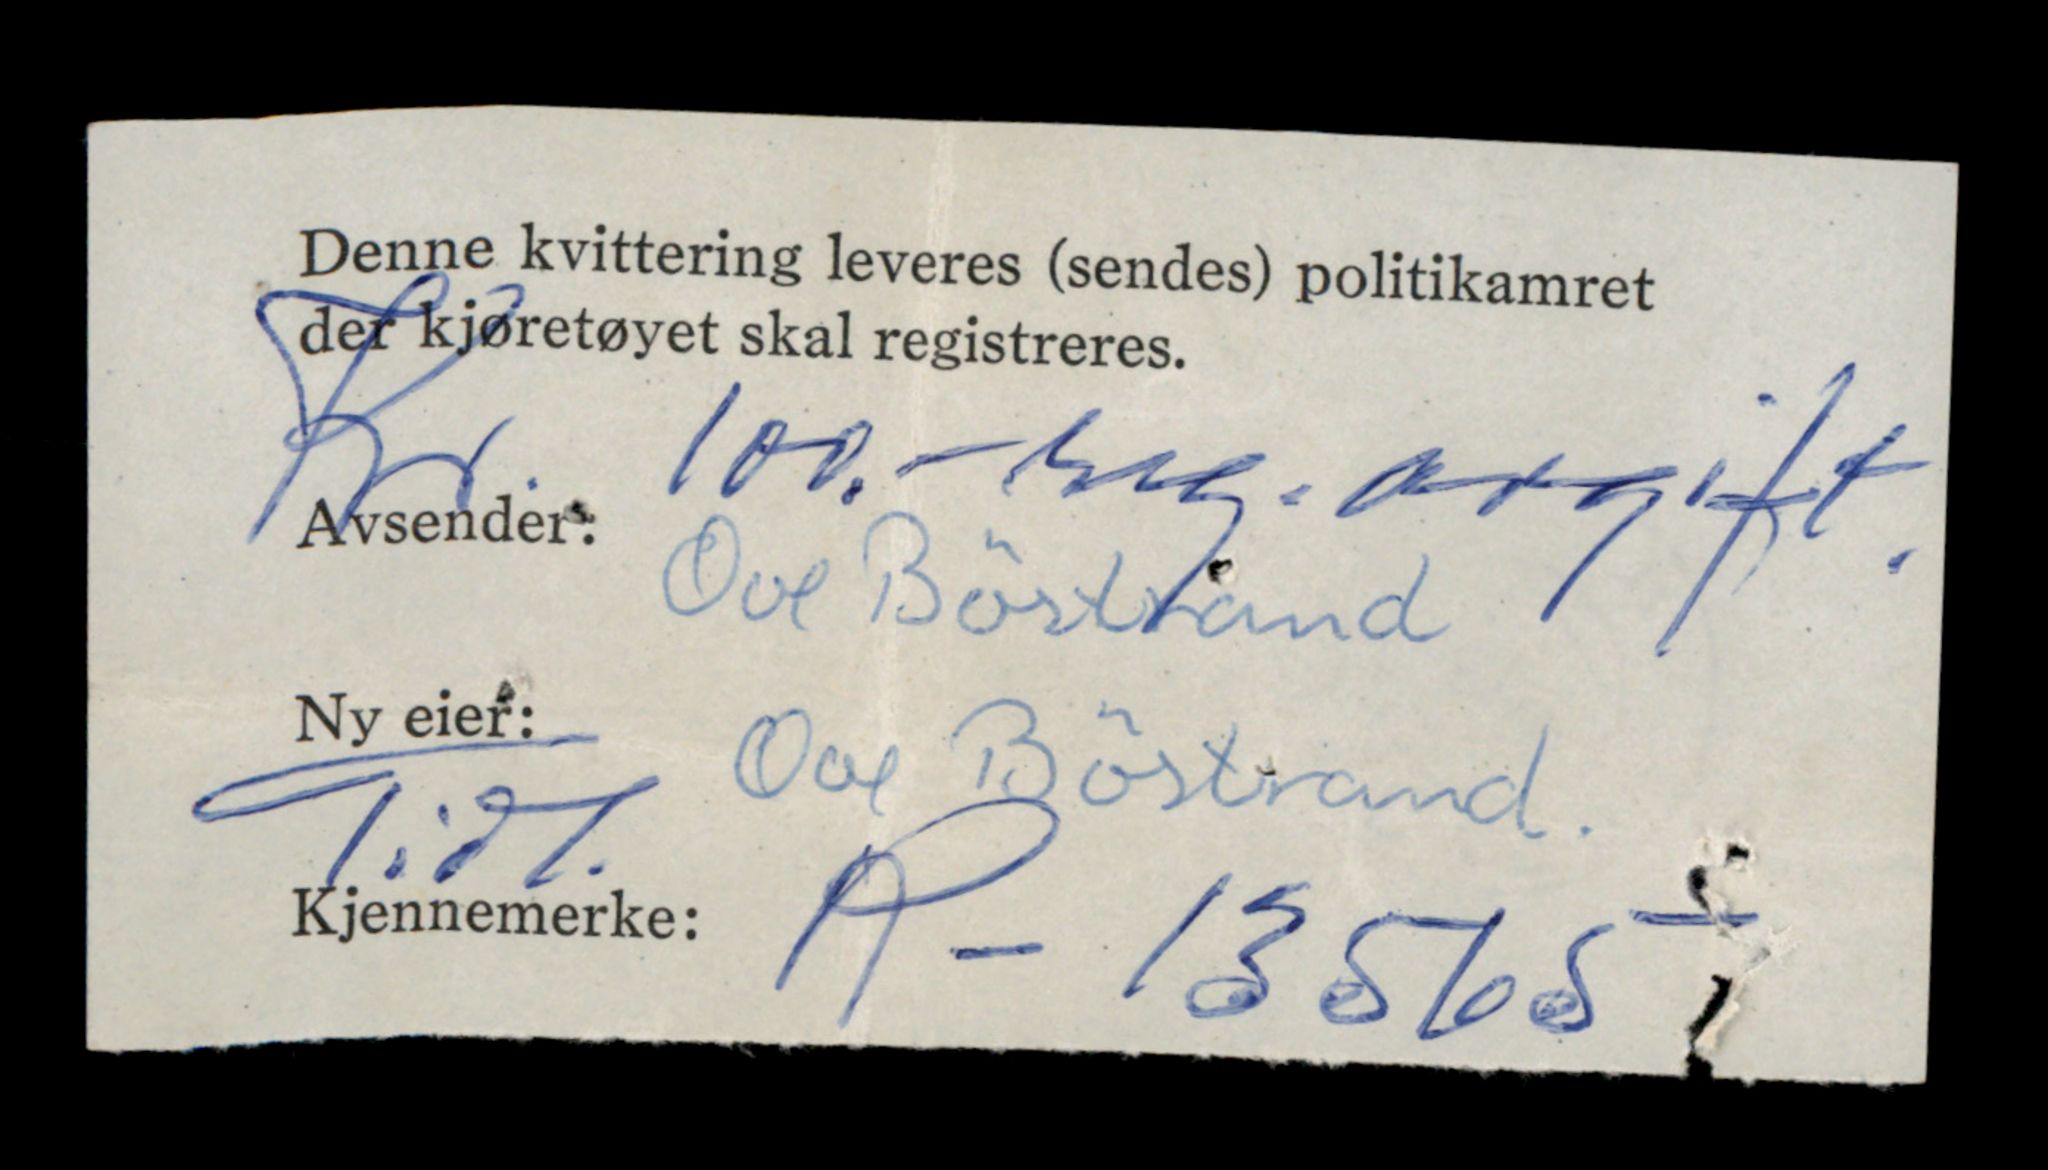 Denne kvittering leveres (sendes) politikamret
der kjøretøyet skal registreres.
Kr. 100.- reg. avgift.
Avsender: Ove Böstrand
Ny eier: Ove Böstrand.
Kjennemerke: R - 13565